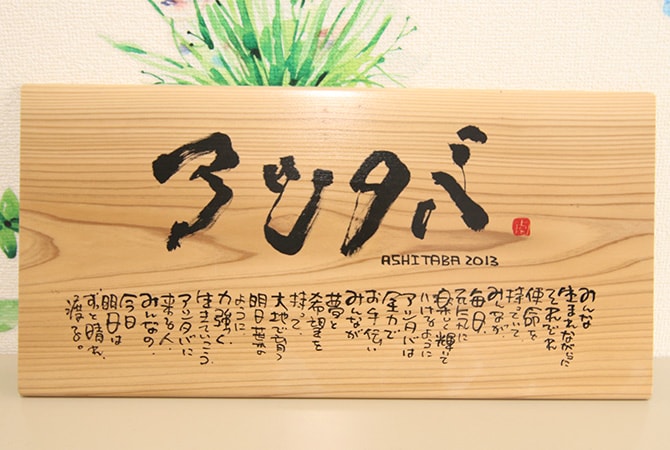 アシタバ
ASHITABA 2013
みんな
生まれながらに
それぞれ
使命を
持っていて
みんなが、
毎日、
元気に
キラキラと輝いて
いけるように
アシタバは
全力で
お手伝い
みんなが
夢と
希望を
持って、
大地で育つ
明日葉の
ように
力強く
生きていこう
アシタバに
来る人、
みんなの、
今日
明日は
ずっと晴れ
渡る。